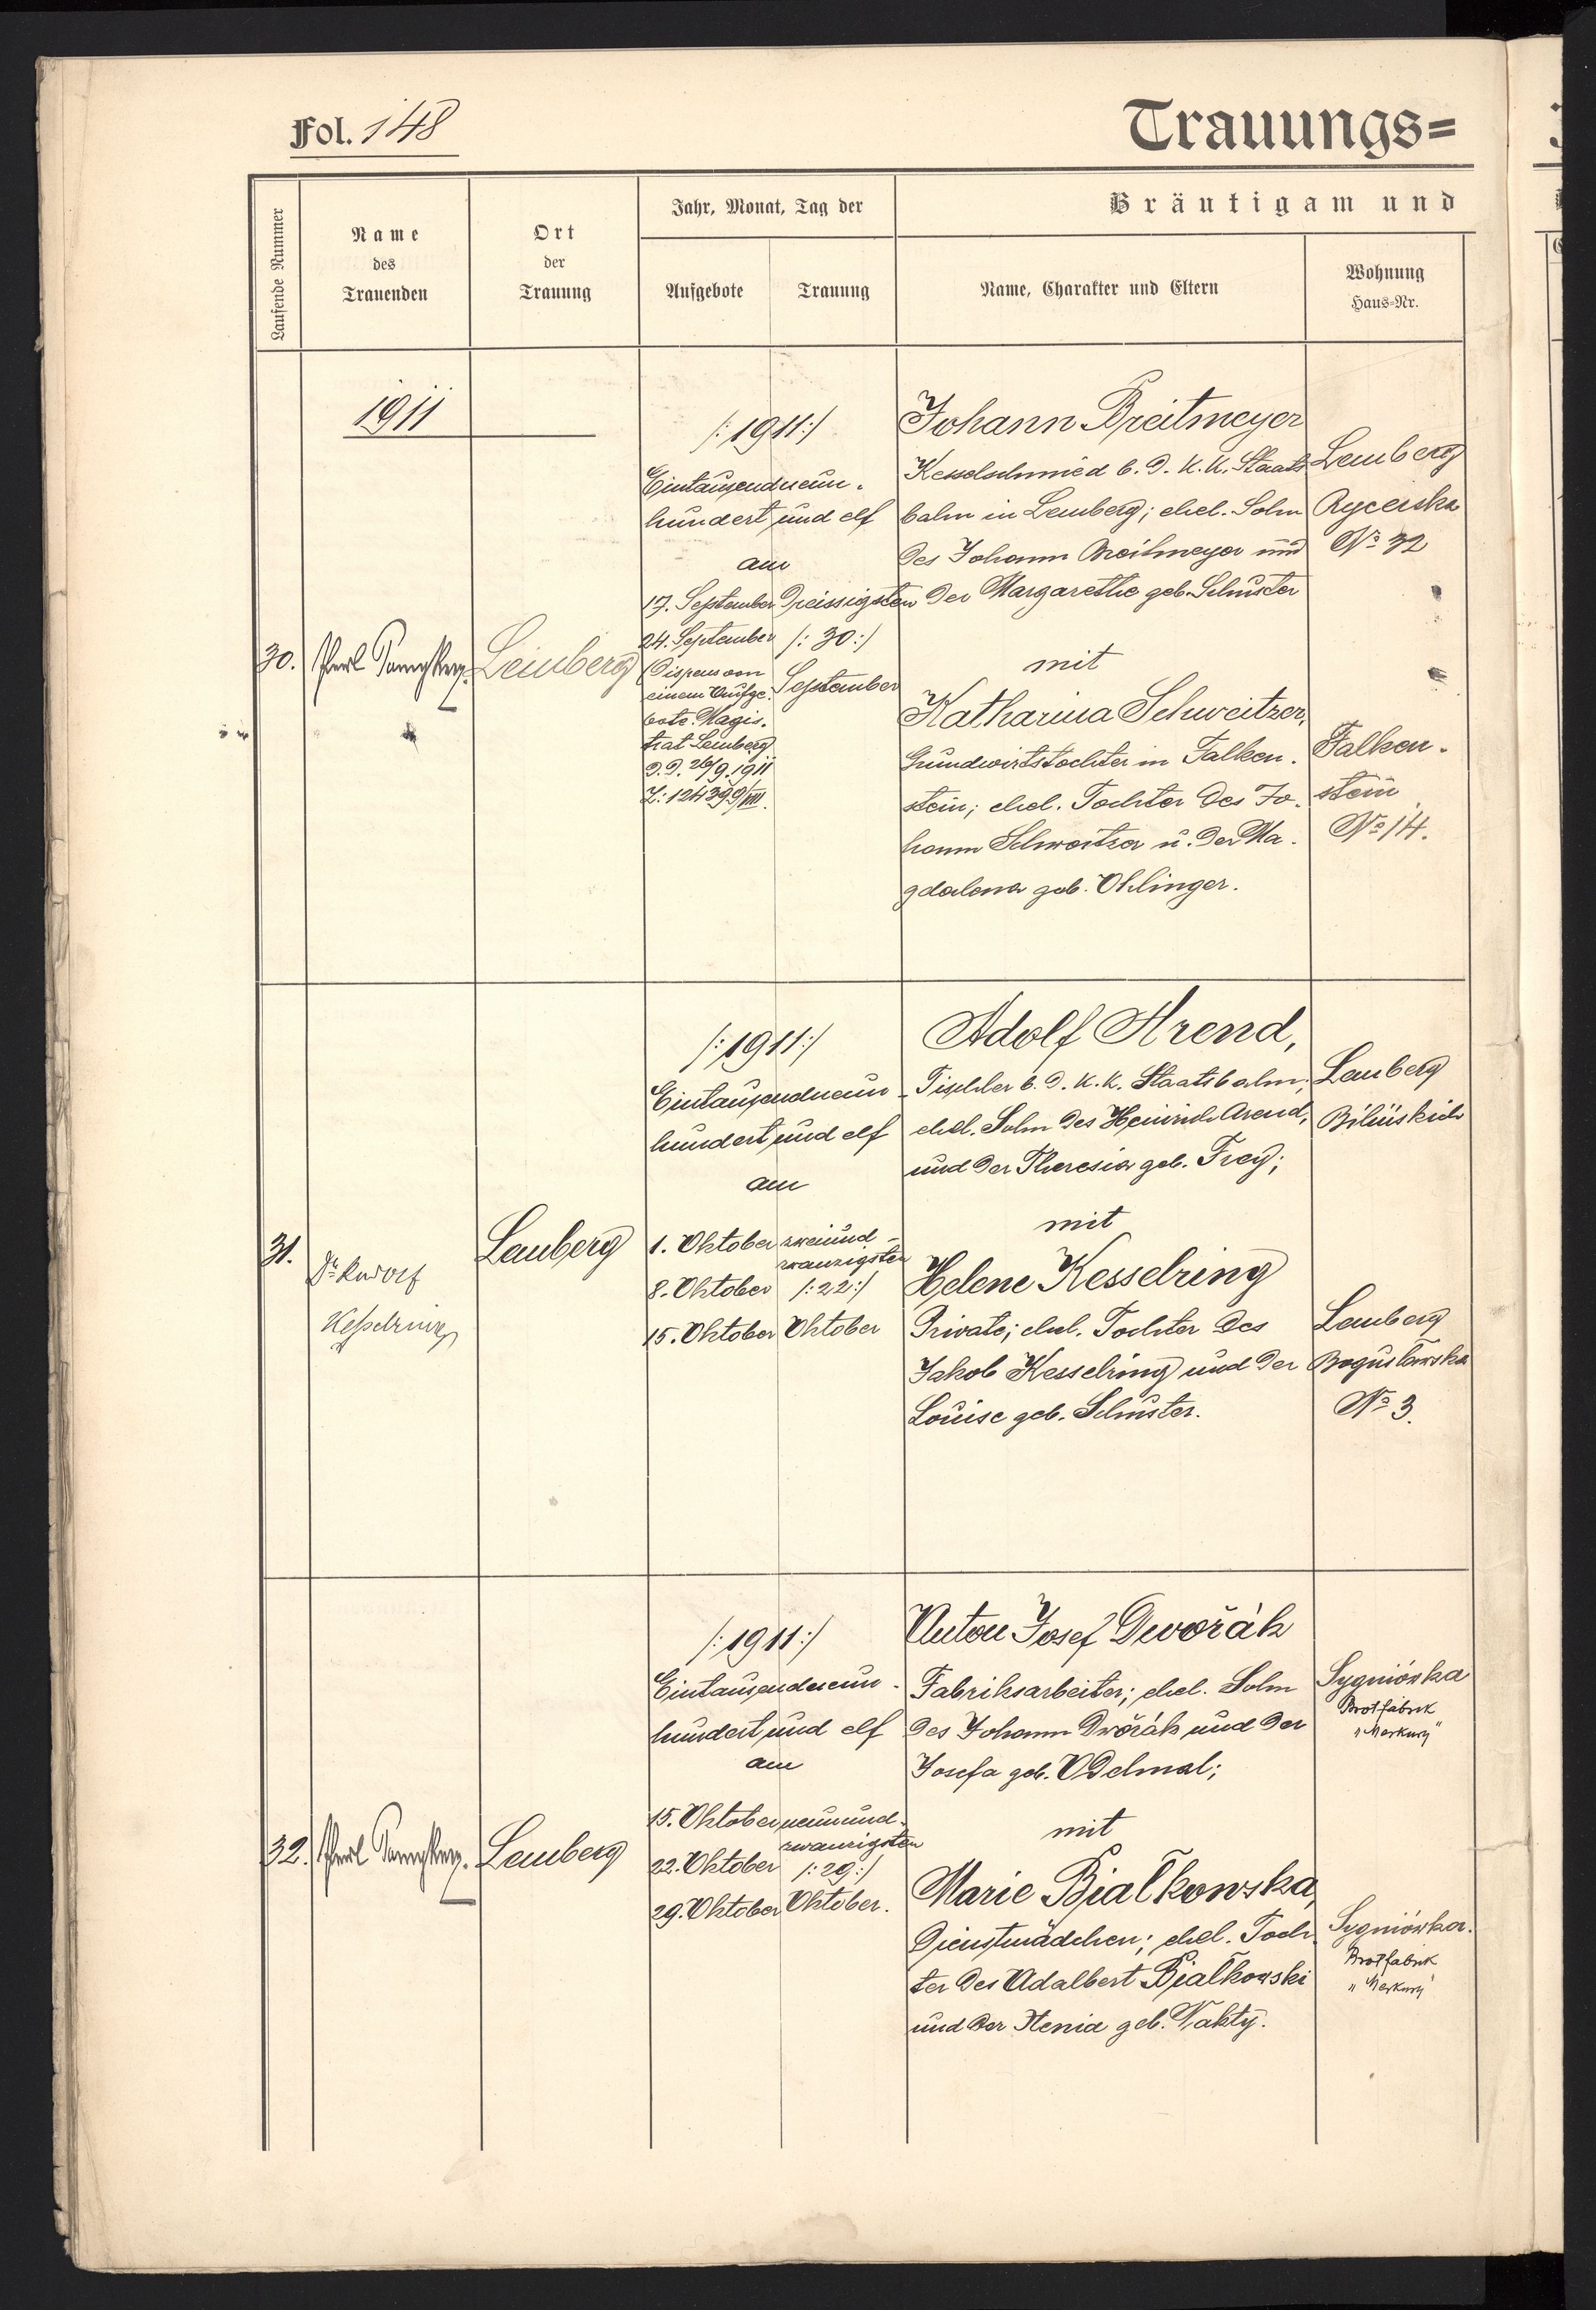 Fol. 148
Trauungs=
Laufende Nummer
Name
des
Trauenden
Ort
der
Trauung
Jahr, Monat, Tag der
Aufgebote
Trauung
Bräutigam und
Name, Charakter und Eltern
Wohnung
Haus=Nr.
1911
30.
Lemberg
/: 1911 :/
Eintausendneun-
hundert und elf
am
17. September
24. September
(Dispens von
einem Aufge-
bote. Magis-
trat Lemberg
d. d. 26/9.1911
Z: 124399/VIII.
Dreissigsten
/: 30 :/
September
Johann Breitmeyer
Kesselschmied b. d. k. k. Staats
bahn in Lemberg; ehel. Sohn
des Johann Breitmeyer und
der Margarethe geb. Schuster
mit
Katharina Schweitzer,
Grundwirtstochter in Falken-
stein; ehel. Tochter des Jo-
hann Schweitzer u. der Ma-
gdalena geb. Ohlinger.
Lemberg
Rycerska
No 32
Falken-
stein
No 14.
31.
Dr. Rudolf
Kesselring
Lemberg
/: 1911 :/
Eintausendneun-
hundert und elf
am
1. Oktober
8. Oktober
15. Oktober
zweiund-
zwanzigsten
/: 22 :/
Oktober
Adolf Arend,
Tischler b. d. k. k. Staatsbahn;
ehel. Sohn des Heinrich Arend,
und der Theresia geb. Frey;
mit
Helene Kesselring
Private; ehel. Tochter des
Jakob Kesselring und der
Louise geb. Schuster.
Lemberg
Bilińskich
Lemberg
Bogusławska
No 3.
32.
Lemberg
/: 1911 :/
Eintausendneun-
hundert und elf
am
15. Oktober
22. Oktober
29. Oktober
neunund-
zwanzigsten
/: 29 :/
Oktober.
Anton Josef Dwořák
Fabriksarbeiter; ehel. Sohn
des Johann Dwořák und der
Josefa geb. Odehnal;
mit
Marie Białkowska,
Dienstmädchen; ehel. Toch-
ter des Adalbert Białkowski
und der Xenia geb. Wakty.
Sygniówka
Brotfabrik
"Merkury"
Sygniówka.
Brotfabrik
"Merkury"